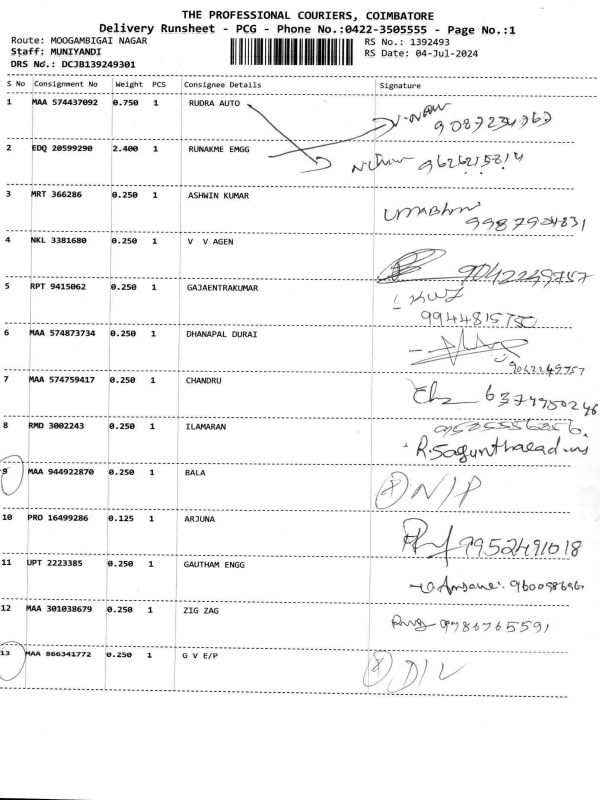 THE PROFESSIONAL COURIERS, COIMBATORE
Delivery Runsheet - PCG - Phone No.:0422-3505555 - Page No.:1
Route: MOOGAMBIGAI NAGAR RS No.: 1392493
Staff: MUNIYANDI RS Date: 04-Jul-2024
DRS No.: DCJB139249301
S No Consignment No Weight PCS Consignee Details Signature
1 MAA 574437092 0.750 1 RUDRA AUTO
2 EDQ 20599290 2.400 1 RUNAKME EMGG
3 MRT 366286 0.250 1 ASHWIN KUMAR
9987924831
4 NKL 3381680 0.250 1 V V AGEN 9042249757
5 RPT 9415062 0.250 1 GAJAENTRAKUMAR
6 MAA 574873734 0.250 1 DHANAPAL DURAI
9042249757
7 MAA 574759417 0.250 1 CHANDRU 6374950246
8 RMD 3002243 0.250 1 ILAMARAN
9 MAA 944922870 0.250 1 BALA N/P
10 PRO 16499286 0.125 1 ARJUNA 9952491018
11 UPT 2223385 0.250 1 GAUTHAM ENGG
12 MAA 301038679 0.250 1 ZIG ZAG 9786765591
13 MAA 866341772 0.250 1 G V E/P D/L